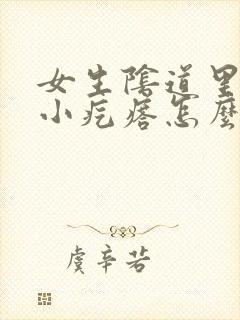 女生陰道里
小疙瘩怎麼
虞辛若